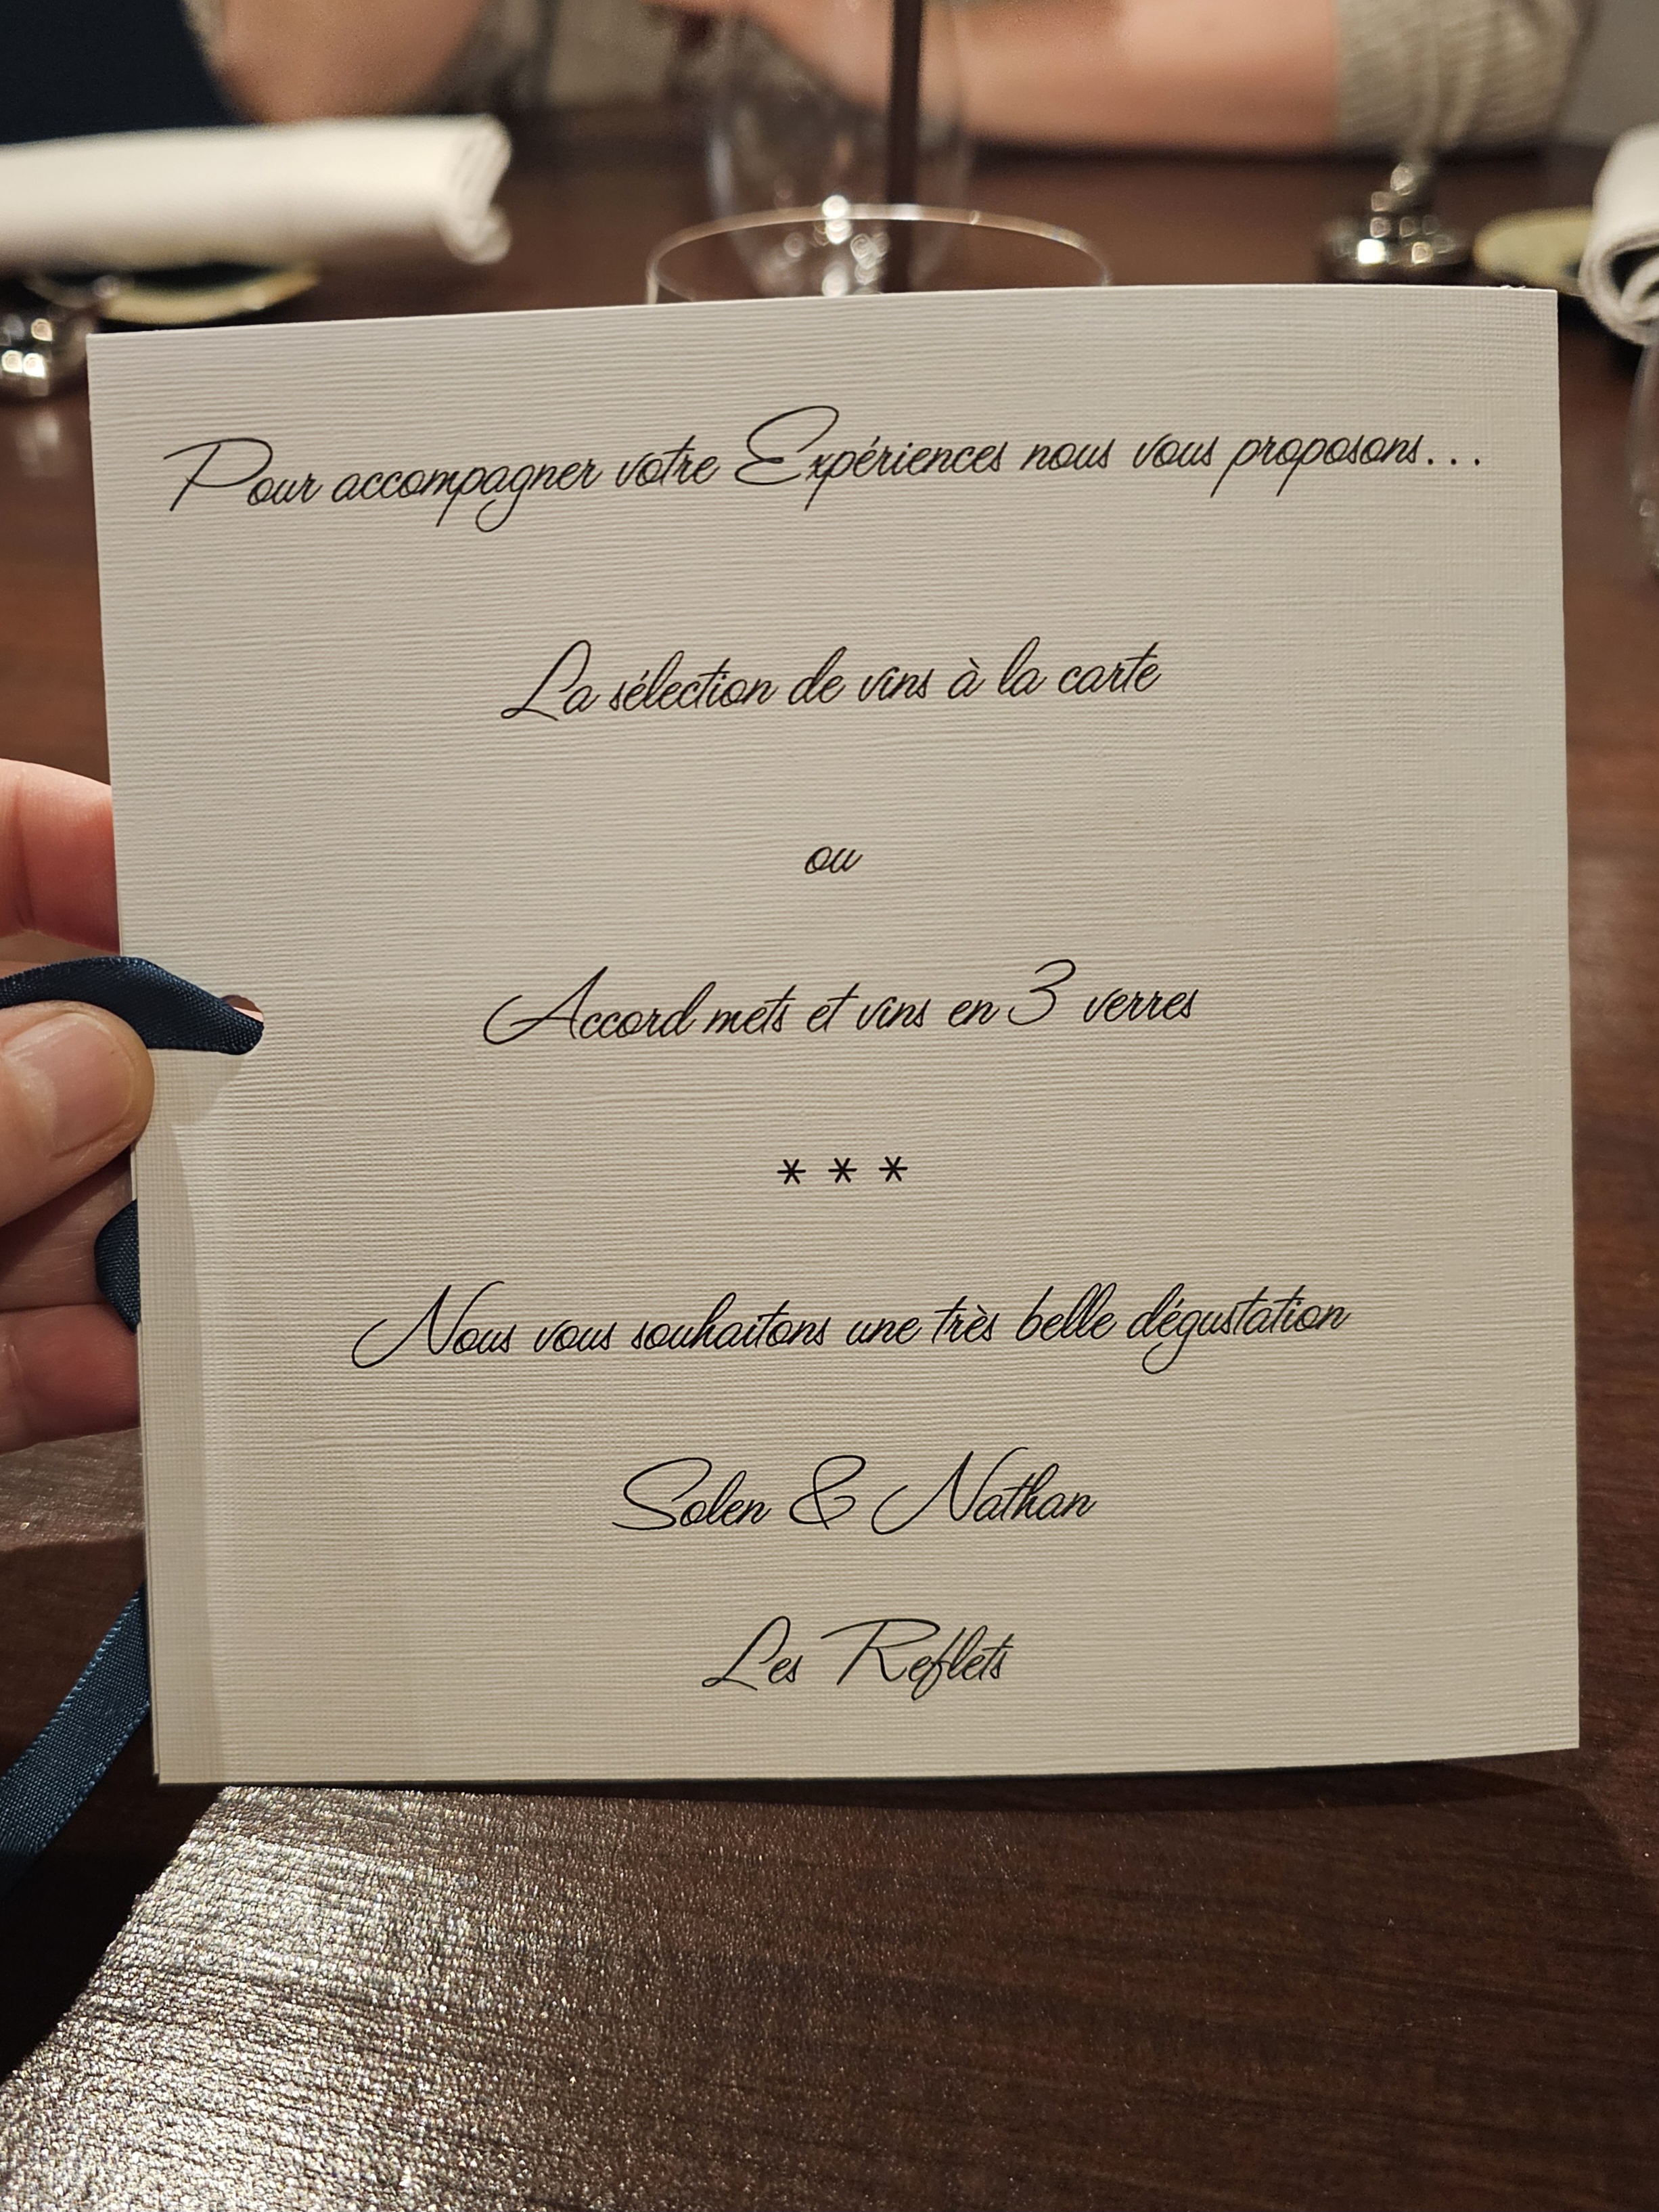 Pour accompagner votre Expériences nous vous proposons...
La sélection de vins à la carte
ou
Accord mets et vins en 3 verres
* * *
Nous vous souhaitons une très belle dégustation
Solen & Nathan
Les Reflets